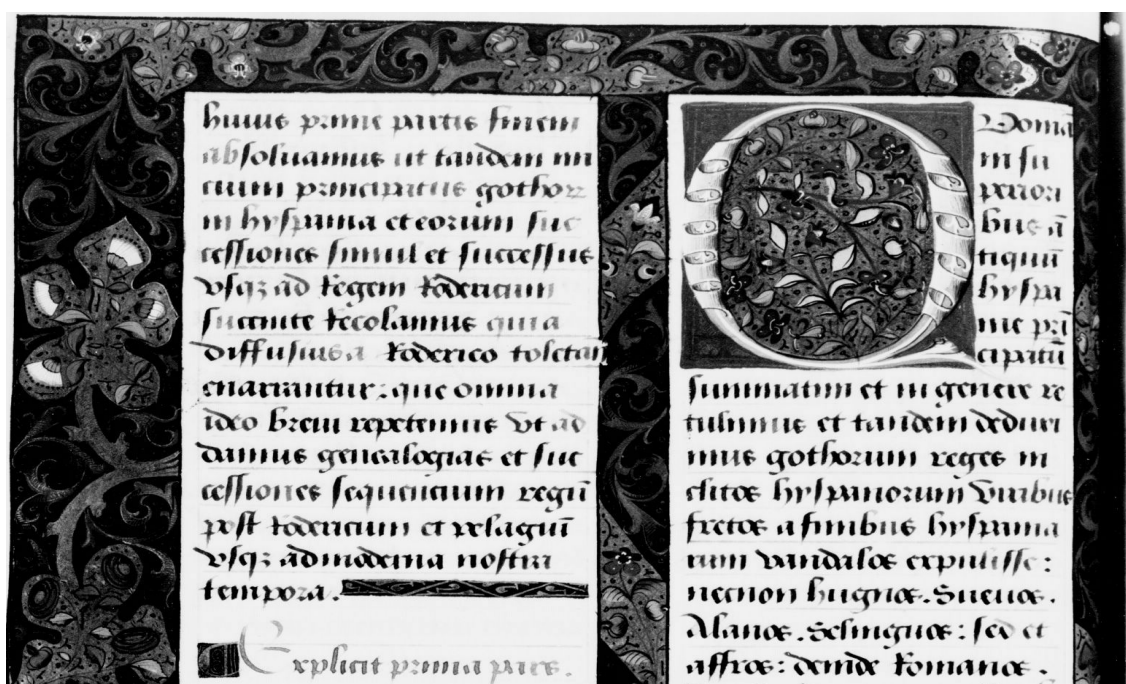 huius prime partis finem
absoluamus ut tandem ini
cium principatus gothor
in hyspania et eorum suc
cessiones simul et successus
vsqꝫ ad regem rodericum
succincte recolamus quia
diffusius a roderico toletañ
enarrantur: que omnia
ideo breui repetemus vt ad
damus genealogias et suc
cessiones sequencium regũ
post rodericum et pelagiũ
vsqꝫ ad moderna nostra
tempora.
Explicit prima pars.
Quoniam
in su
periori
bus ã
tiquũ
hyspa
nie prĩ
cipatũ
summatim et in genere re
tulimus et tandem deduxi
mus gothorum reges in
clitos hyspanorum viribus
fretos a finibus hyspania
rum vandalos expulisse:
necnon hugnos. Sueuos.
Alanos. Selinguos: sed et
affros: deinde romanos.